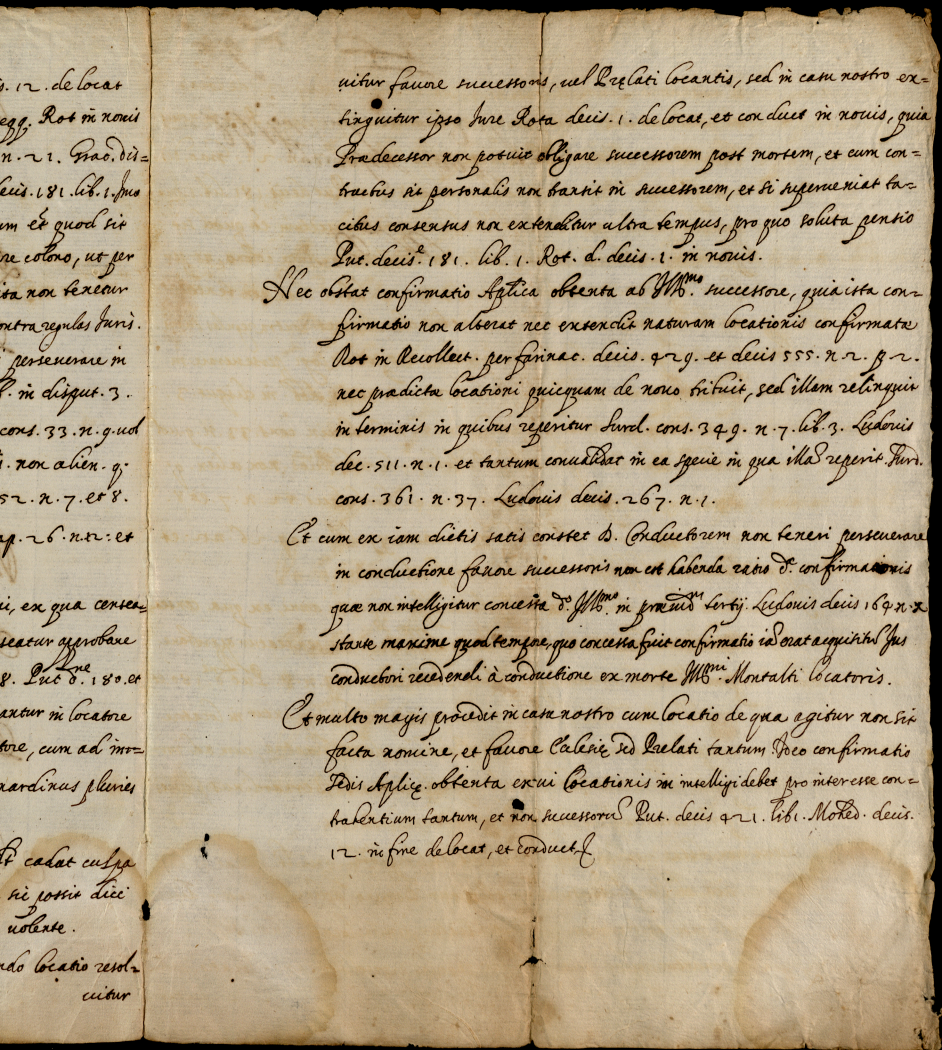 s. 12. de locat
eqq. Rot in nouis
n. 21. Grao, dis=
ecis. 181. lib. 1. Imo
um et quod sit
re colono, ut per
ita non tenetur
ontra regulas Juris.
perseuerare in
in disput. 3.
cons. 33. n. 9. uol
non alien. q.
52. n. 7. et 8.
ap. 26. n. 12: et
ui, ex qua censea=
seatur approbare
8. Put d. ne 180. et
antur in locatore
tore, cum ad ino=
nardinus pluries
cadat culpa
sii possit dici
uolente.
ndo locatio resol=
uitur
uitur fauore successoris, uel Prelati locantis, sed in casu nostro ex=
tinguitur ipso Jure Rota decis. 1. de locat, et conduct in nouis, quia
Praedecessor non potuit obligare successorem post mortem, et cum con=
tractus sit personalis non transit in successorem, et si superueniat ta=
citus consensus non extenditur ultra tempus, pro quo soluta pensio
Put. decis. e 181. lib. 1. Rot. d. decis. 1. in nouis.
Nec obstat confirmatio Aplica obtenta ab Ill.mo successore, quia ista con=
firmatio non alterat nec extendit naturam locationis confirmatae
Rot in Recollect. per farinac. decis. 429. et decis 555. n. 2. p. 2.
nec praedictae locationi quicquam de nouo tribuit, sed illam relinquit
in terminis in quibus reperitur Surd. cons. 349. n. 7. lib. 3. Ludouis
dec. 511. n. 1. et tantum conualidat in ea specie in qua illa reperit. Surd.
cons. 361. n. 37. Ludouis decis. 267. n. 1.
Et cum ex iam dictis satis constet D. Conductorem non teneri perseuerare
in conductione fauore successoris non est habenda ratio d. confirmationis
quae non intelligitur concessa d. Ill.mo in praeiud.m tertij. Ludouis decis 164 n. x
stante maxime quod tempore, quo concessa fuit confirmatio ia erat acquisitu Jus
conductori recedendi à conductione ex morte Ill.mi Montalti locatoris.
Et multo magis procedit in casu nostro cum locatio de qua agitur non sit
facta nomine, et fauore Ecclesie sed Prelati tantum Ideo confirmatio
Sedis Aplice obtenta exui locationis in intelligi debet pro interesse con=
trahentium tantum, et non successoru Put. decis 421. lib 1. Mohed. decis.
12. in fine de locat, et conduct